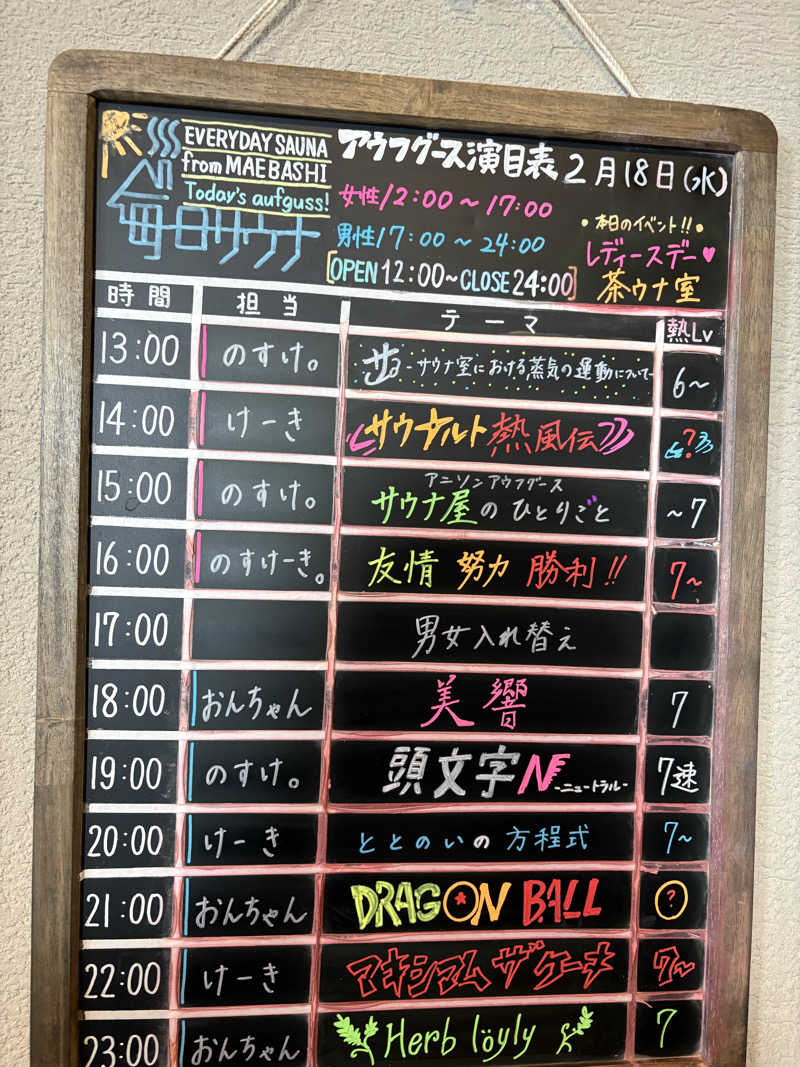 EVERYDAY SAUNA
from MAEBASHI
Today's aufguss!
毎日サウナ
アウフグース演目表 2月18日(水)
女性12:00〜17:00
男性17:00〜24:00
[OPEN12:00〜CLOSE24:00]
•本日のイベント!!•
レディースデー♥
茶ウナ室
時間 担当 テーマ 熱Lv
13:00 のすけ。 -サウナ室における蒸気の運動について- 6〜
14:00 けーき サウナルト熱風伝 ?
15:00 のすけ。 アニソンアウフグース
サウナ屋のひとりごと 〜7
16:00 のすけーき。 友情 努力 勝利!! 7〜
17:00 男女入れ替え
18:00 おんちゃん 美響 7
19:00 のすけ。 頭文字N -ニュートラル- 7速
20:00 けーき ととのいの方程式 7〜
21:00 おんちゃん DRAGON BALL ?
22:00 けーき マキシマム ザ ケーキ 7〜
23:00 おんちゃん Herb löyly 7